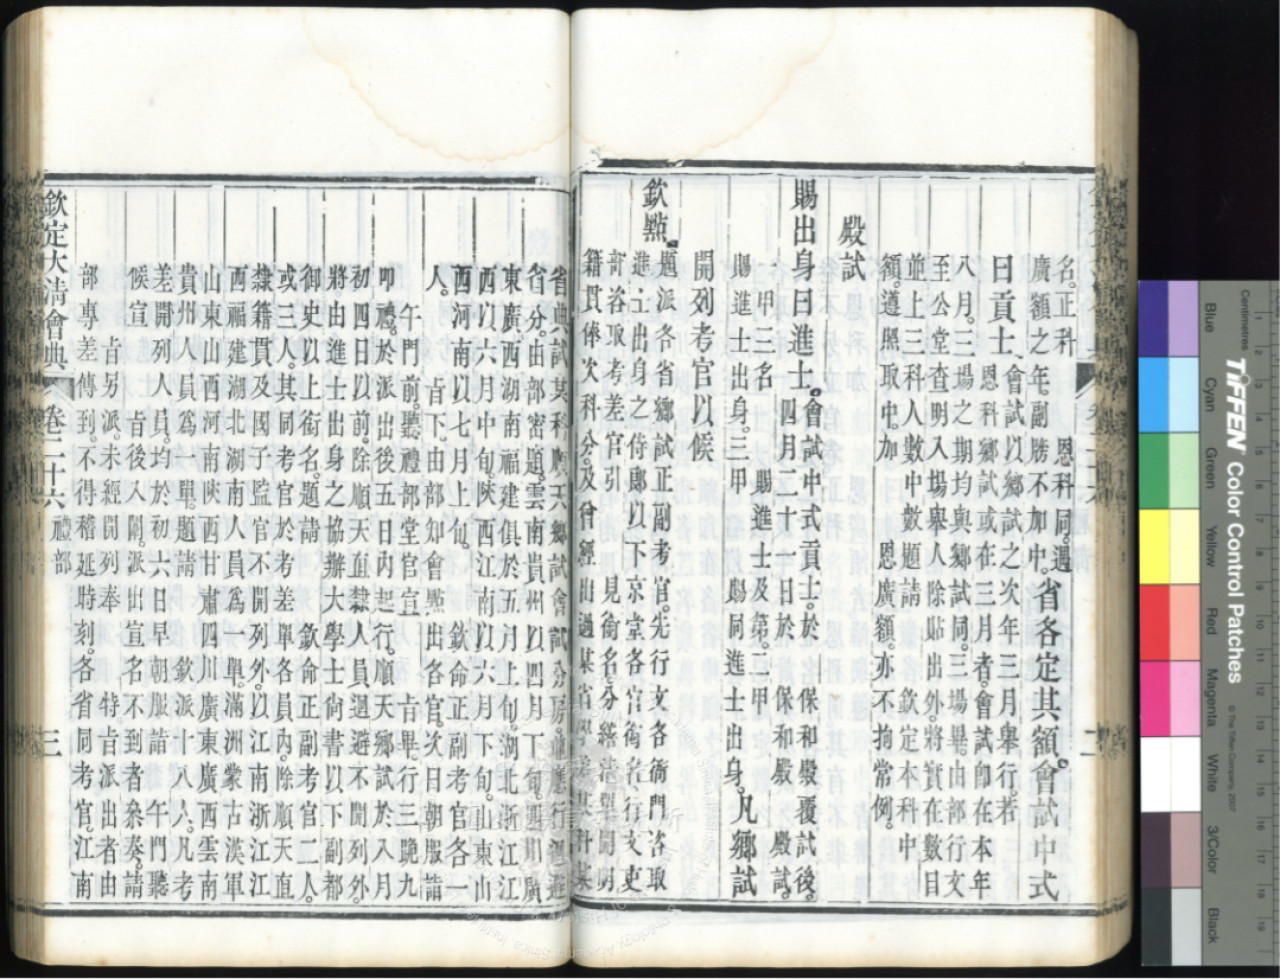 名。正科 恩科同。遇
廣額之年。副牓不加中。省各定其額。會試中式
曰貢士、會試以鄉試之次年三月舉行。若
恩科鄉試或在三月者會試卽在本年
八月。三場之期均與鄉試同。三場畢由部行文
至公堂查明入場舉人除貼出外。將實在數目
並上三科人數中數題請 欽定本科中
額。遵照取中。加 恩廣額。亦不拘常例。
殿試
賜出身曰進士。會試中式貢士。於 保和殿覆試後。
四月二十一日於 保和殿 殿試。
一甲三名 賜進士及第。二甲
賜進士出身。三甲 賜同進士出身。凡鄉試
開列考官以候
欽點。題派各省鄉試正副考官。先行文各衙門咨取
進士出身之侍郞以下京堂各官銜名。行文吏
部咨取考差官引 見銜名。分繕清單開明
籍貫俸次科分。及曾經出過某省
省分。由部密題。雲南貴州以四月下旬。廣
東廣西湖南福建俱於五月上旬。湖北浙江江
西以六月中旬。陝西江南以六月下旬。山東山
西河南以七月上旬。 欽命正副考官各一
人。 旨下。由部知會點出各官。次日朝服詣
午門前。聽禮部堂官宣 旨畢。行三跪九
叩禮。於派出後五日內起行。順天鄉試於八月
初四日以前。除順天直隸人員迴避不開列外。
將由進士出身之協辦大學士尙書以下副都
御史以上銜名。題請 欽命正副考官二人。
或三人。其同考官於考差單各員內。除順天直
隸籍貫及國子監官不開列外。以江南浙江江
西福建湖北湖南人員爲一單。滿洲蒙古漢軍
山東山西河南陝西甘肅四川廣東廣西雲南
貴州人員爲一單。題請 欽派十八人。凡考
差開列人員。均於初六日早朝服詣 午門聽
候宣 旨後入闈。派出宣名不到者參奏。請
旨另派。未經開列奉 特旨派出者由
部專差傳到。不得稽延時刻。各省同考官。江南
欽定大淸會典
卷三十六
禮部
三
Centimetres
TIFFEN Color Control Patches
© The Tiffen Company, 2007
Blue Cyan Green Yellow Red Magenta White 3/Color Black